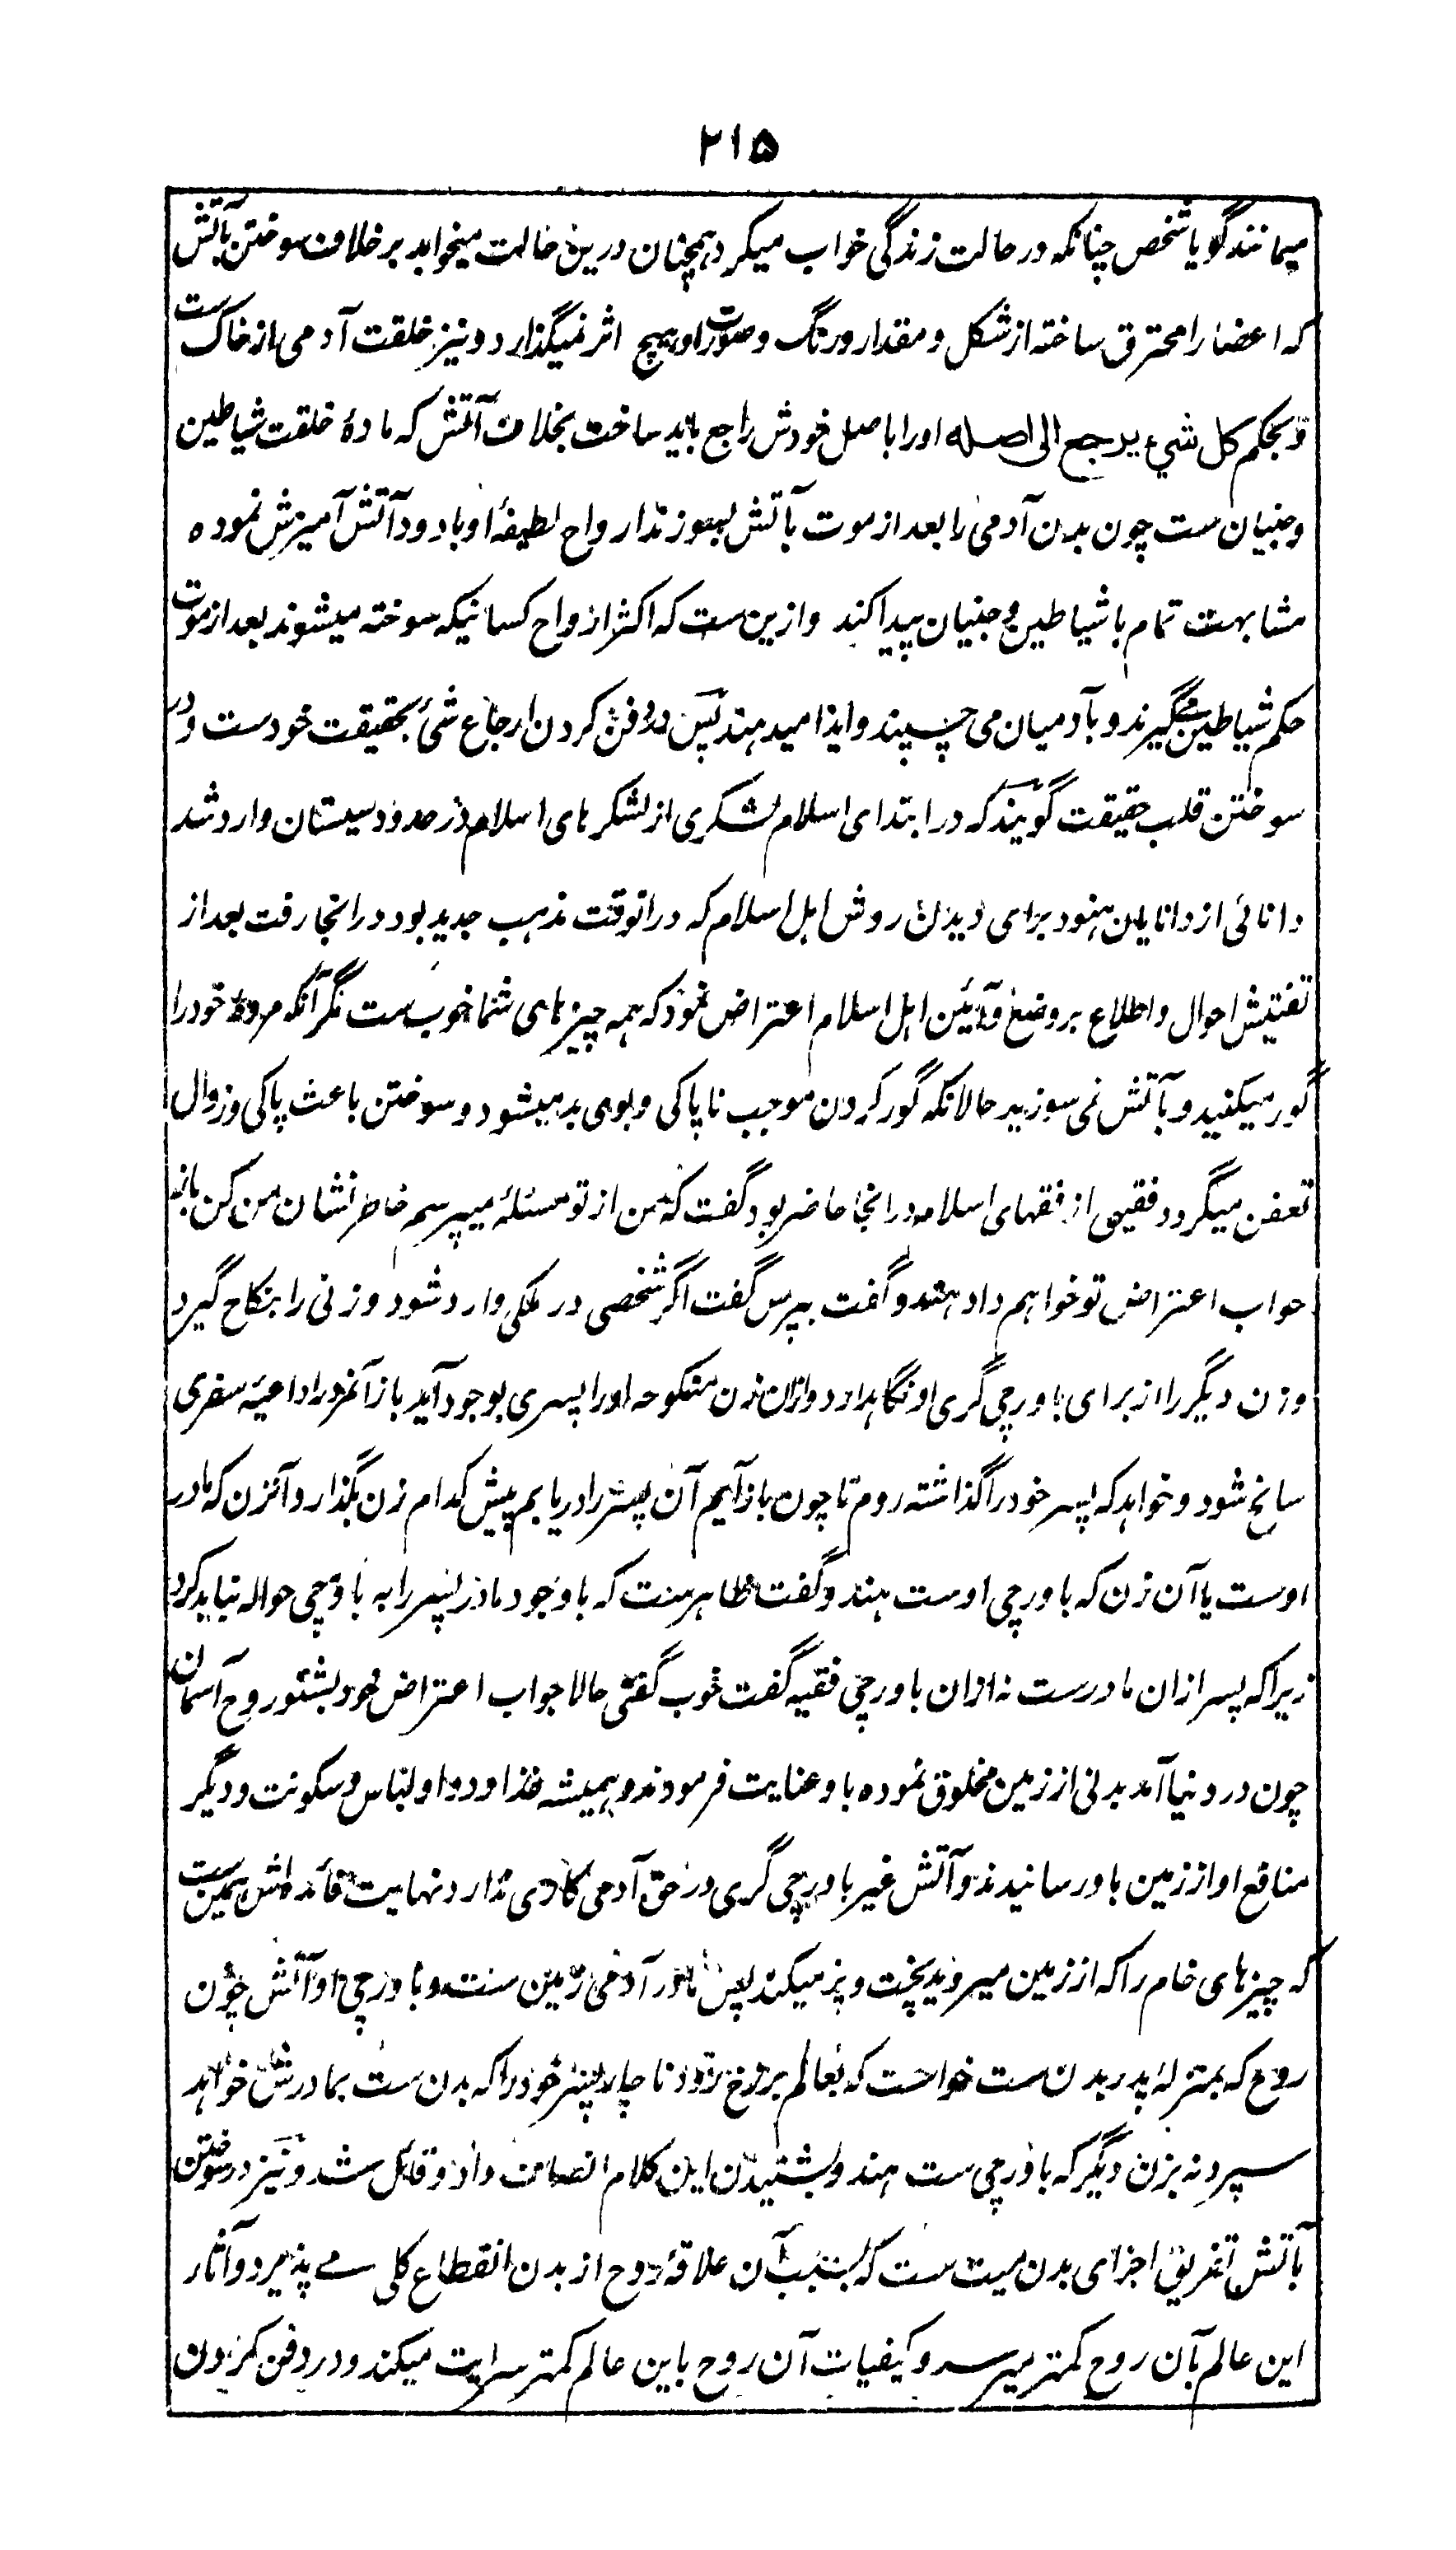 ۲۱۵
میمانند گویا شخص چنانکه در حالت زندگی خواب میکرد همچنان درین حالت میخوابد برخلاف سوختن بآتش
که اعضا را محترق ساخته از شکل و مقدار و رنگ و صورت او هیچ اثر نمیگذارد و نیز خلقت آدمی از خاک ست
و بحکم کل شیء یرجع الی اصله او را باصل خودش راجع باید ساخت بخلاف آتش که مادهٔ خلقت شیاطین
و جنیان ست چون بدن آدمی را بعد از موت بآتش بسوزند ارواح لطیفهٔ او با دود آتش آمیزش نموده
مشابهت تمام با شیاطین و جنیان پیدا کند و ازین ست که اکثر ارواح کسانیکه سوخته میشوند بعد از موت
حکم شیاطین میگیرند و بآدمیان می چسپند و ایذا میدهند پس در دفن کردن ارجاع شئ بحقیقت خود ست و در
سوختن قلب حقیقت گویند که در ابتدای اسلام لشکری از لشکرهای اسلام در حدود سیستان وارد شد
دانائی از دانایان هنود برای دیدن روش اهل اسلام که درانوقت مذهب جدید بود درانجا رفت بعد از
تفتیش احوال و اطلاع بر وضع و آئین اهل اسلام اعتراض نمود که همه چیزهای شما خوب ست مگر آنکه مردهٔ خود را
گور میکنید و بآتش نمی سوزید حالانکه گور کردن موجب ناپاکی و بوی بد میشود و سوختن باعث پاکی و زوال
تعفن میگردد فقیهی از فقهای اسلام درانجا حاضر بود گفت که من از تو مسئله میپرسم خاطرنشان من کن باز
جواب اعتراض تو خواهم داد هندو گفت بپرس گفت اگر شخصی در ملکی وارد شود و زنی را بنکاح گیرد
و زن دیگر را از برای باورچی گری او نگاهدارد و ازان زن منکوحه او را پسری بوجود آید باز آنمرد را داعیهٔ سفری
سانح شود و خواهد که پسر خود را گذاشته روم تا چون باز آیم آن پسر را دریابم پیش کدام زن بگذارد آنزن که مادر
اوست یا آن زن که باورچی اوست هندو گفت ظاهر ست که باوجود مادر پسر را به باورچی حواله نباید کرد
زیراکه پسر ازان مادرست نه ازان باورچی فقیه گفت خوب گفتی حالا جواب اعتراض خود بشنو روح آسمان
چون در دنیا آمد بدنی از زمین مخلوق نموده باو عنایت فرمودند و همیشه غذا و دوا و لباس و سکونت و دیگر
منافع او از زمین باو رسانیدند و آتش غیر باورچی گری در حق آدمی کاری ندارد نهایت فائده اش همین ست
که چیزهای خام را که از زمین میروید پخت و پز میکند پس مادر آدمی زمین ست و باورچی او آتش چون
روح که بمنزلهٔ پدر بدن ست خواست که بعالم برزخ رود ناچار پسر خود را که بدن ست بمادرش خواهد
سپرد نه بزن دیگر که باورچی ست هندو بشنیدن این کلام انصاف داد و قائل شد و نیز در سوختن
بآتش تفریق اجزای بدن میت ست که بسبب آن علاقهٔ روح از بدن انقطاع کلی مے پذیرد و آثار
این عالم بآن روح کمتر میرسد و کیفیات آن روح باین عالم کمتر سرایت میکند و در دفن کردن